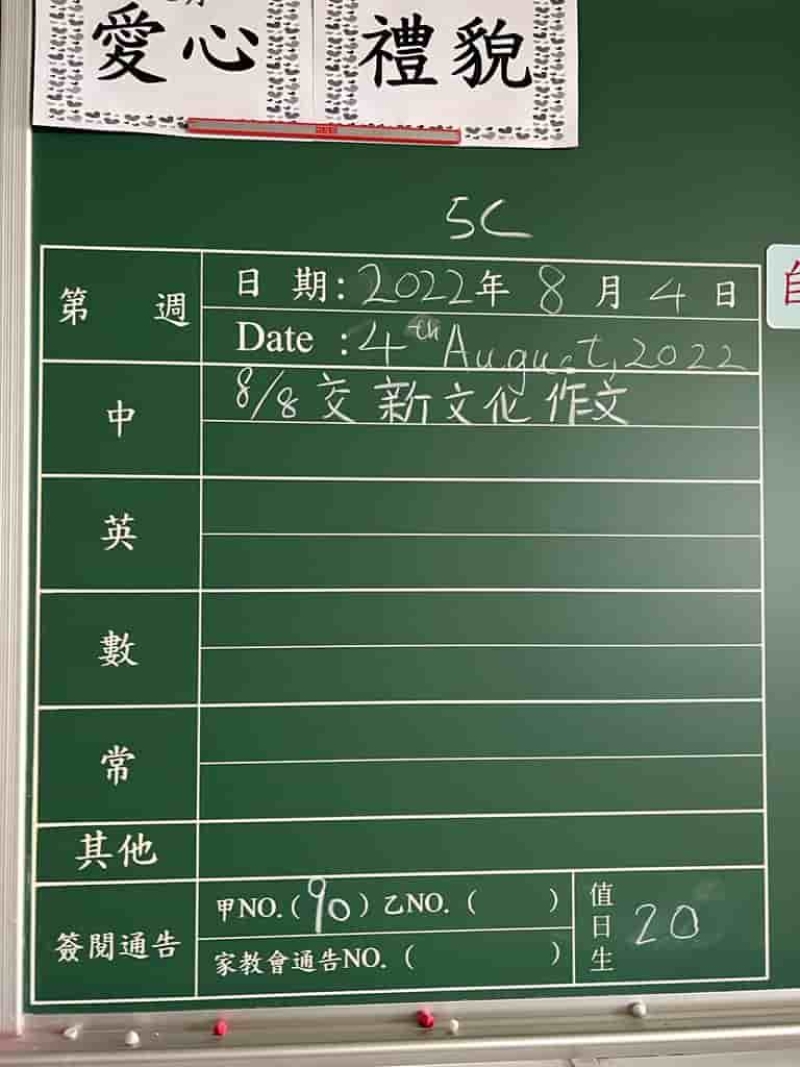 愛心 禮貌
5C
第 週
日 期: 2022年 8 月 4 日
Date : 4th August, 2022
中
8/8 交 新文化 作文
英
數
常
其他
簽閱通告
甲NO.( 90 ) 乙NO. ( )
家教會通告NO. ( )
值日生 20